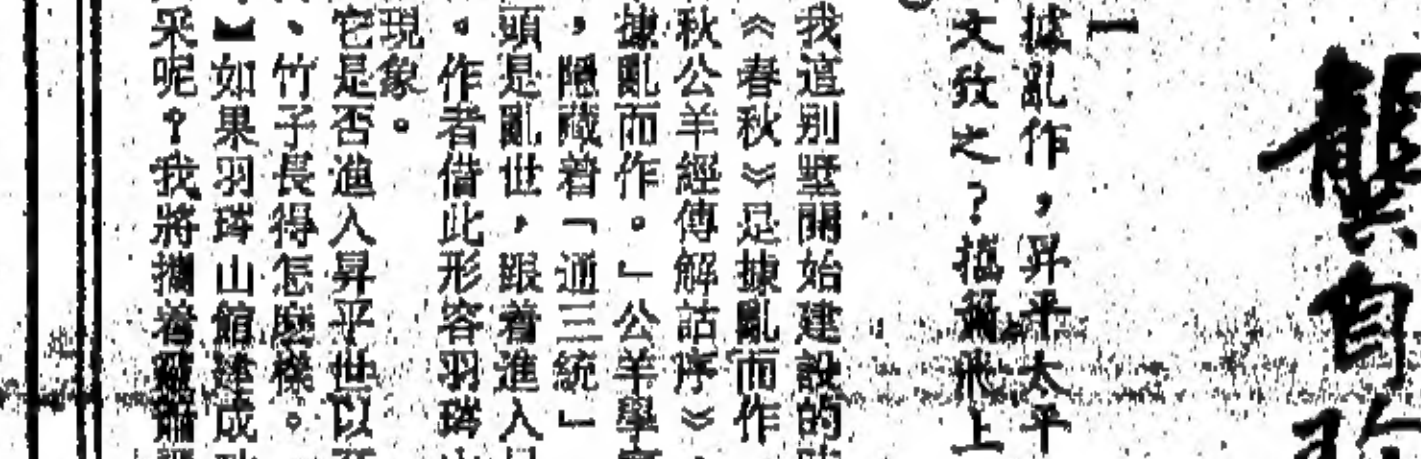 龔自珍
一
據亂作，昇平太平
文致之？攜爾飛上
我這别墅開始建設的
《春秋》是據亂而作
秋公羊經傳解詁序》
據亂而作。」公羊學
，隱藏着「通三統」
頭是亂世，跟着進入
。作者借此形容羽琌山
現象。
它是否進入昇平世以
、竹子長得怎麽樣。
】如果羽琌山館建成
采呢？我將攜着